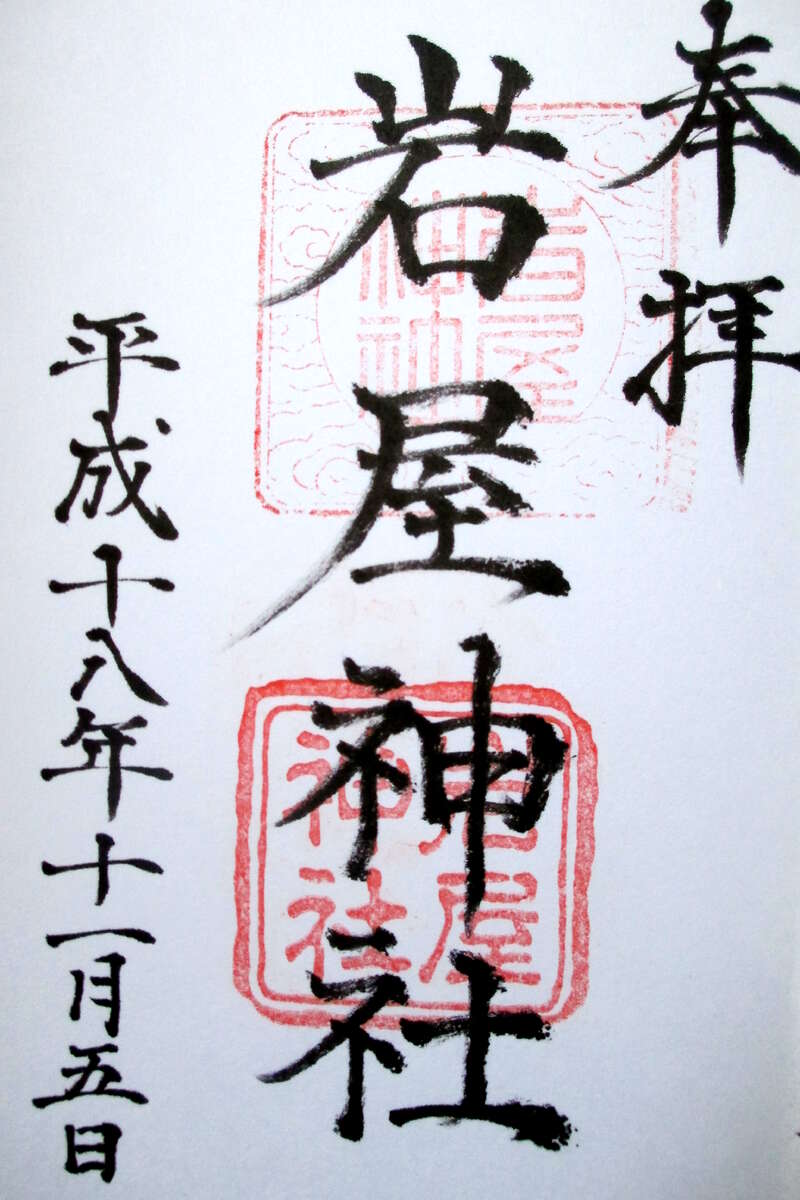 奉拝
岩屋神社
岩屋神社
平成十八年十一月五日